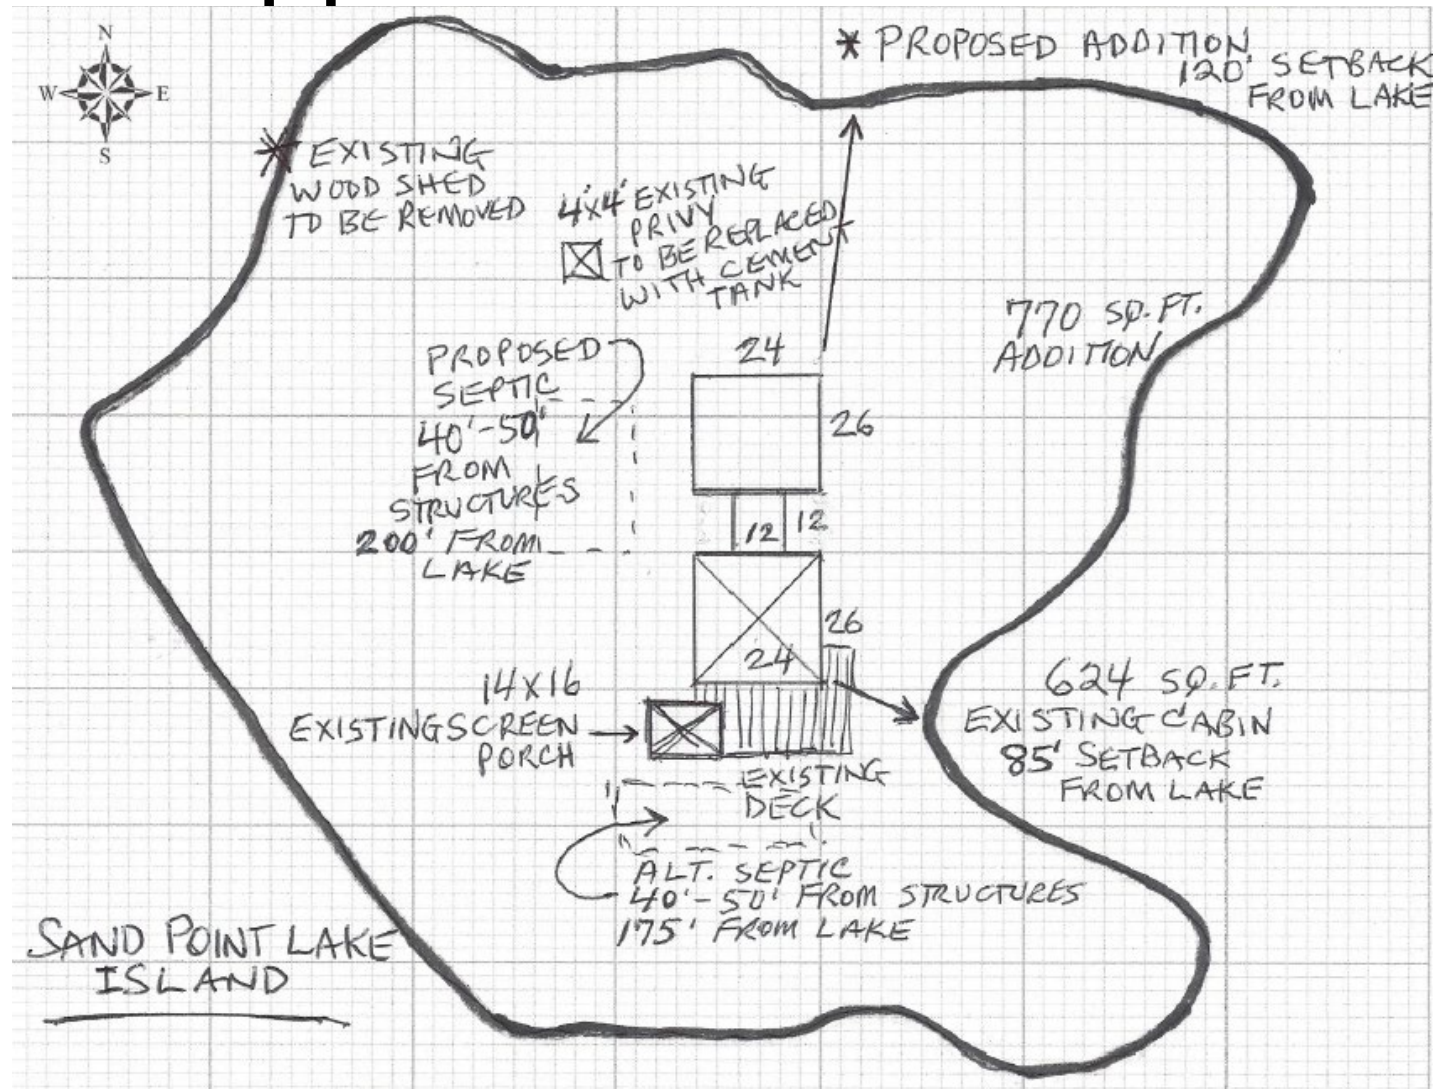 N
W E
S
* PROPOSED ADDITION
120' SETBACK
FROM LAKE
EXISTING
WOOD SHED
TO BE REMOVED
4'x4' EXISTING
PRIVY
TO BE REPLACED
WITH CEMENT
TANK
770 SQ. FT.
ADDITION
PROPOSED
SEPTIC
40'-50'
FROM
STRUCTURES
200' FROM
LAKE
24
26
12 12
26
24
14X16
EXISTING SCREEN
PORCH
624 SQ. FT.
EXISTING CABIN
85' SETBACK
FROM LAKE
EXISTING
DECK
ALT. SEPTIC
40'-50' FROM STRUCTURES
175' FROM LAKE
SAND POINT LAKE
ISLAND